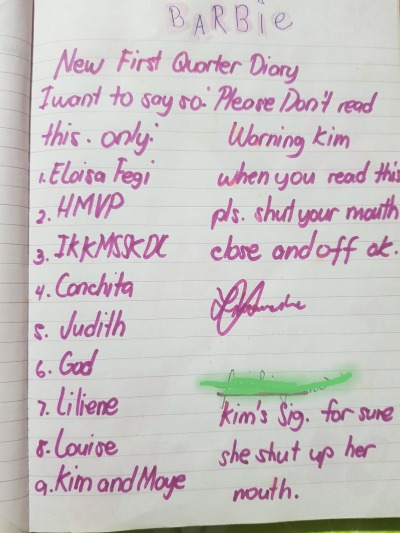 BARBie
New First Quarter Diary
I want to say so: Please Don't read
this. only:
1. Eloisa Fegi
2. HMVP
3. IKKMSSKDC
4. Conchita
5. Judith
6. God
7. Liliene
8. Louise
9. Kim and Maye
Warning Kim
when you read this
pls. shut your mouth
close and off ok.
Kim's Sig. for sure
she shut up her
mouth.